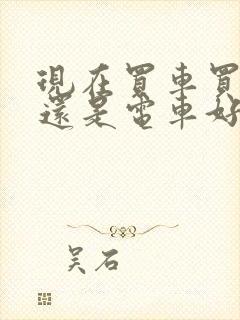 現在買車買
還是電車好
吴石